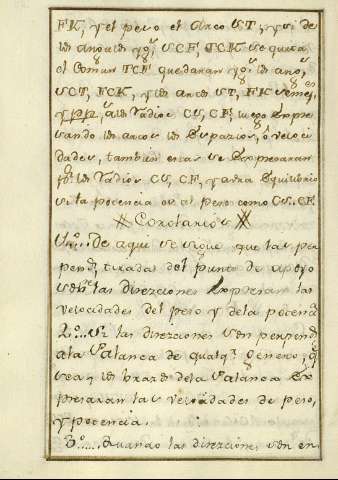 FK, y el peso el Arco ST, y si de
los angulos yg.s SCF, TCK se quita
el Comun TCF quedaran yg.s los ang.s
SCT, FCK, y los arcos ST, FK semej.s
y pp.s a los Radios CS, CF; luego Expre
sando los arcos los Espazios, ô veloci
dades, tambien estas se Expresaran
p.r los Radios CS, CF, y avra Equilibrio
si la potencia es al peso como CS. CF.
Corolarios
1.o... De aqui se sigue que las per
pend.s tiradas del punto de apoyo
sobre las direziones Expresan las
velocidades del peso y dela potenc.a
2.o... Si las direziones son perpend.s
ala Palanca de qualq.r genero, q.e
sea, los brazos dela Palanca Ex
presaran las velozidades de peso,
y potencia.
3.o... Quando las direziones son en